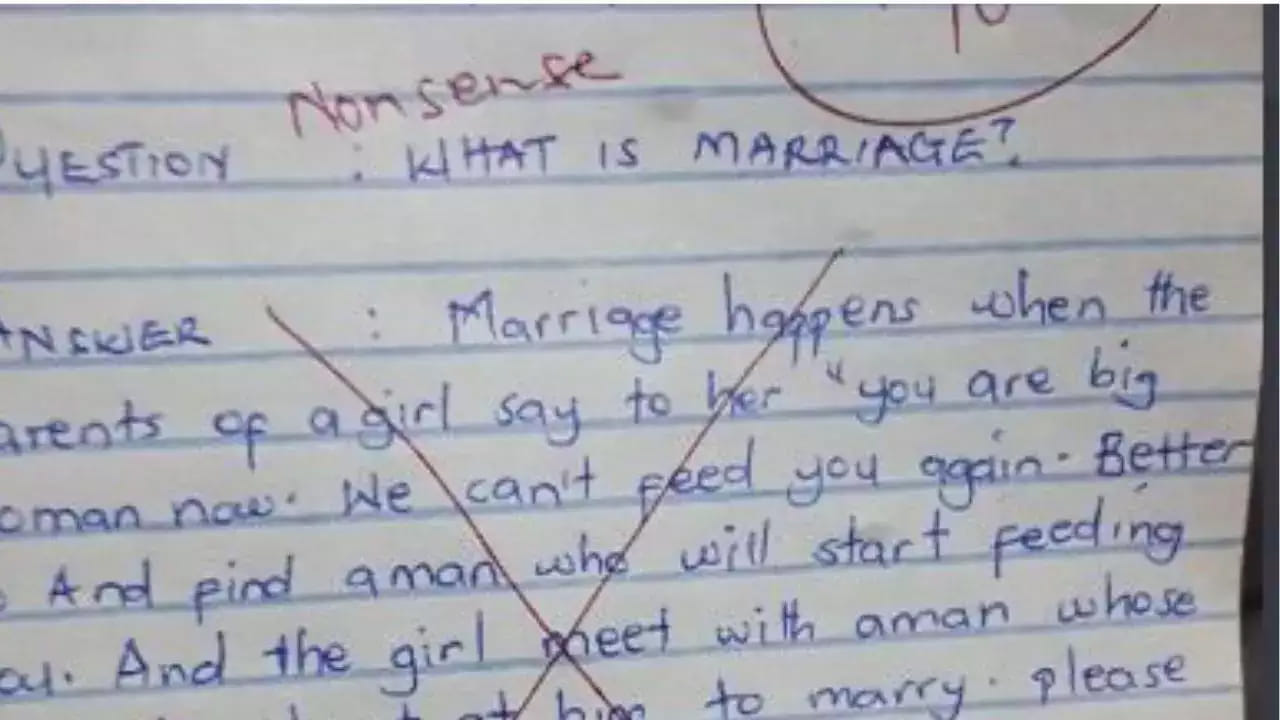 10
Nonsense
QUESTION : WHAT IS MARRIAGE?
ANSWER : Marriage happens when the
arents of a girl say to her "you are big
oman now. We can't feed you again. Better
And find a man who will start feeding
And the girl meet with aman whose
at him to marry. please